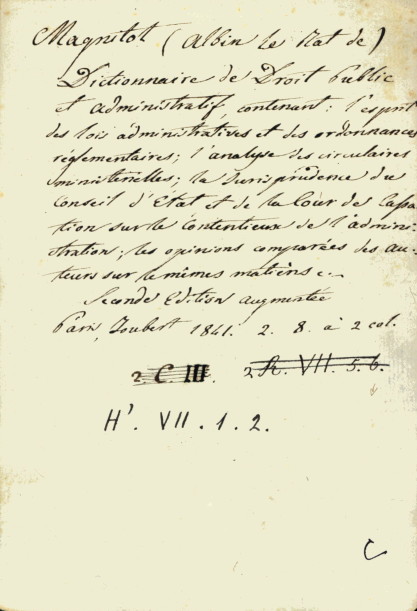 Magnitot (Albin Le Rat de)
Dictionnaire de Droit public
et administratif, contenant: l'esprit
des lois administratives et des ordonnances
réglementaires; l'analyse des circulaires
ministérielles; la Jurisprudence du
Conseil d'Etat et de la Cour de Cassa
tion sur le contentieux de l'admini-
stration; les opinions comparées des au-
teurs sur le mêmes matières &.
Seconde Edition augmentée
Paris, Joubert 1841. 2. 8. à 2 col.
2 C. III. 2 R. VII. 5. 6.
H'. VII. 1. 2.
C